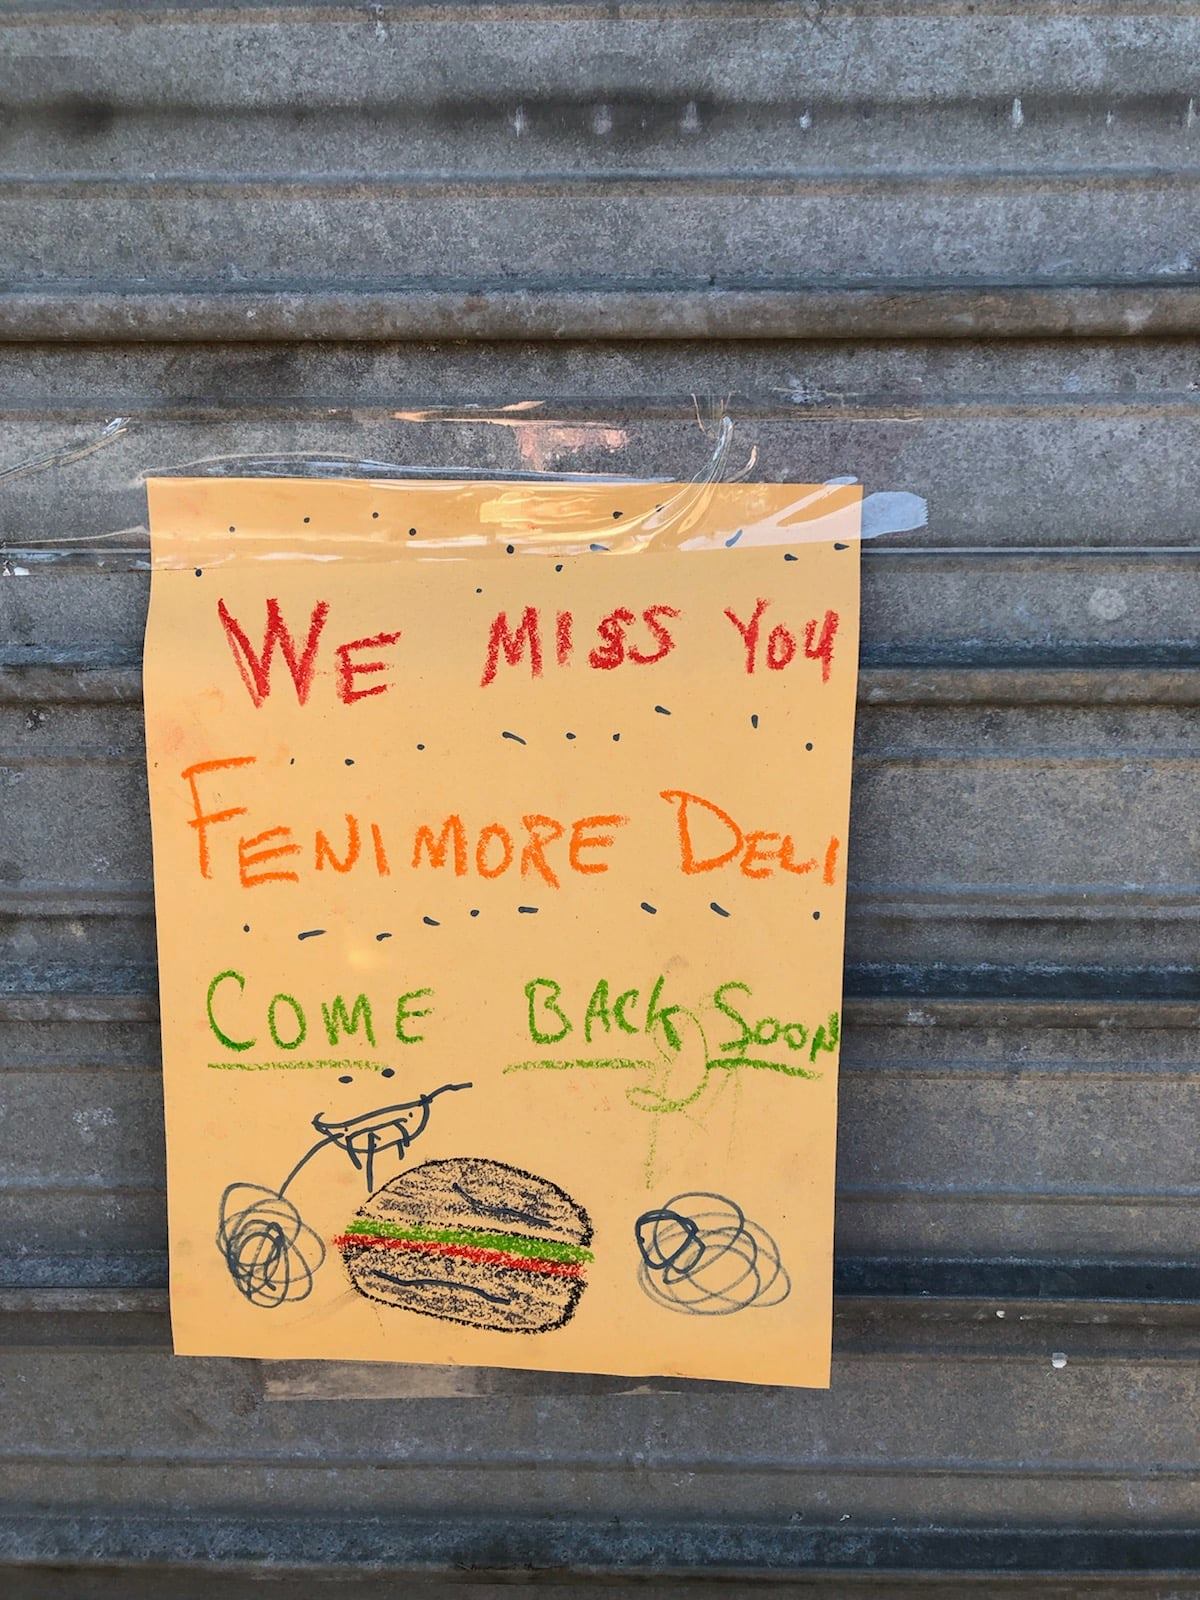 WE MISS YOU
FENIMORE DELI
COME BACK SOON